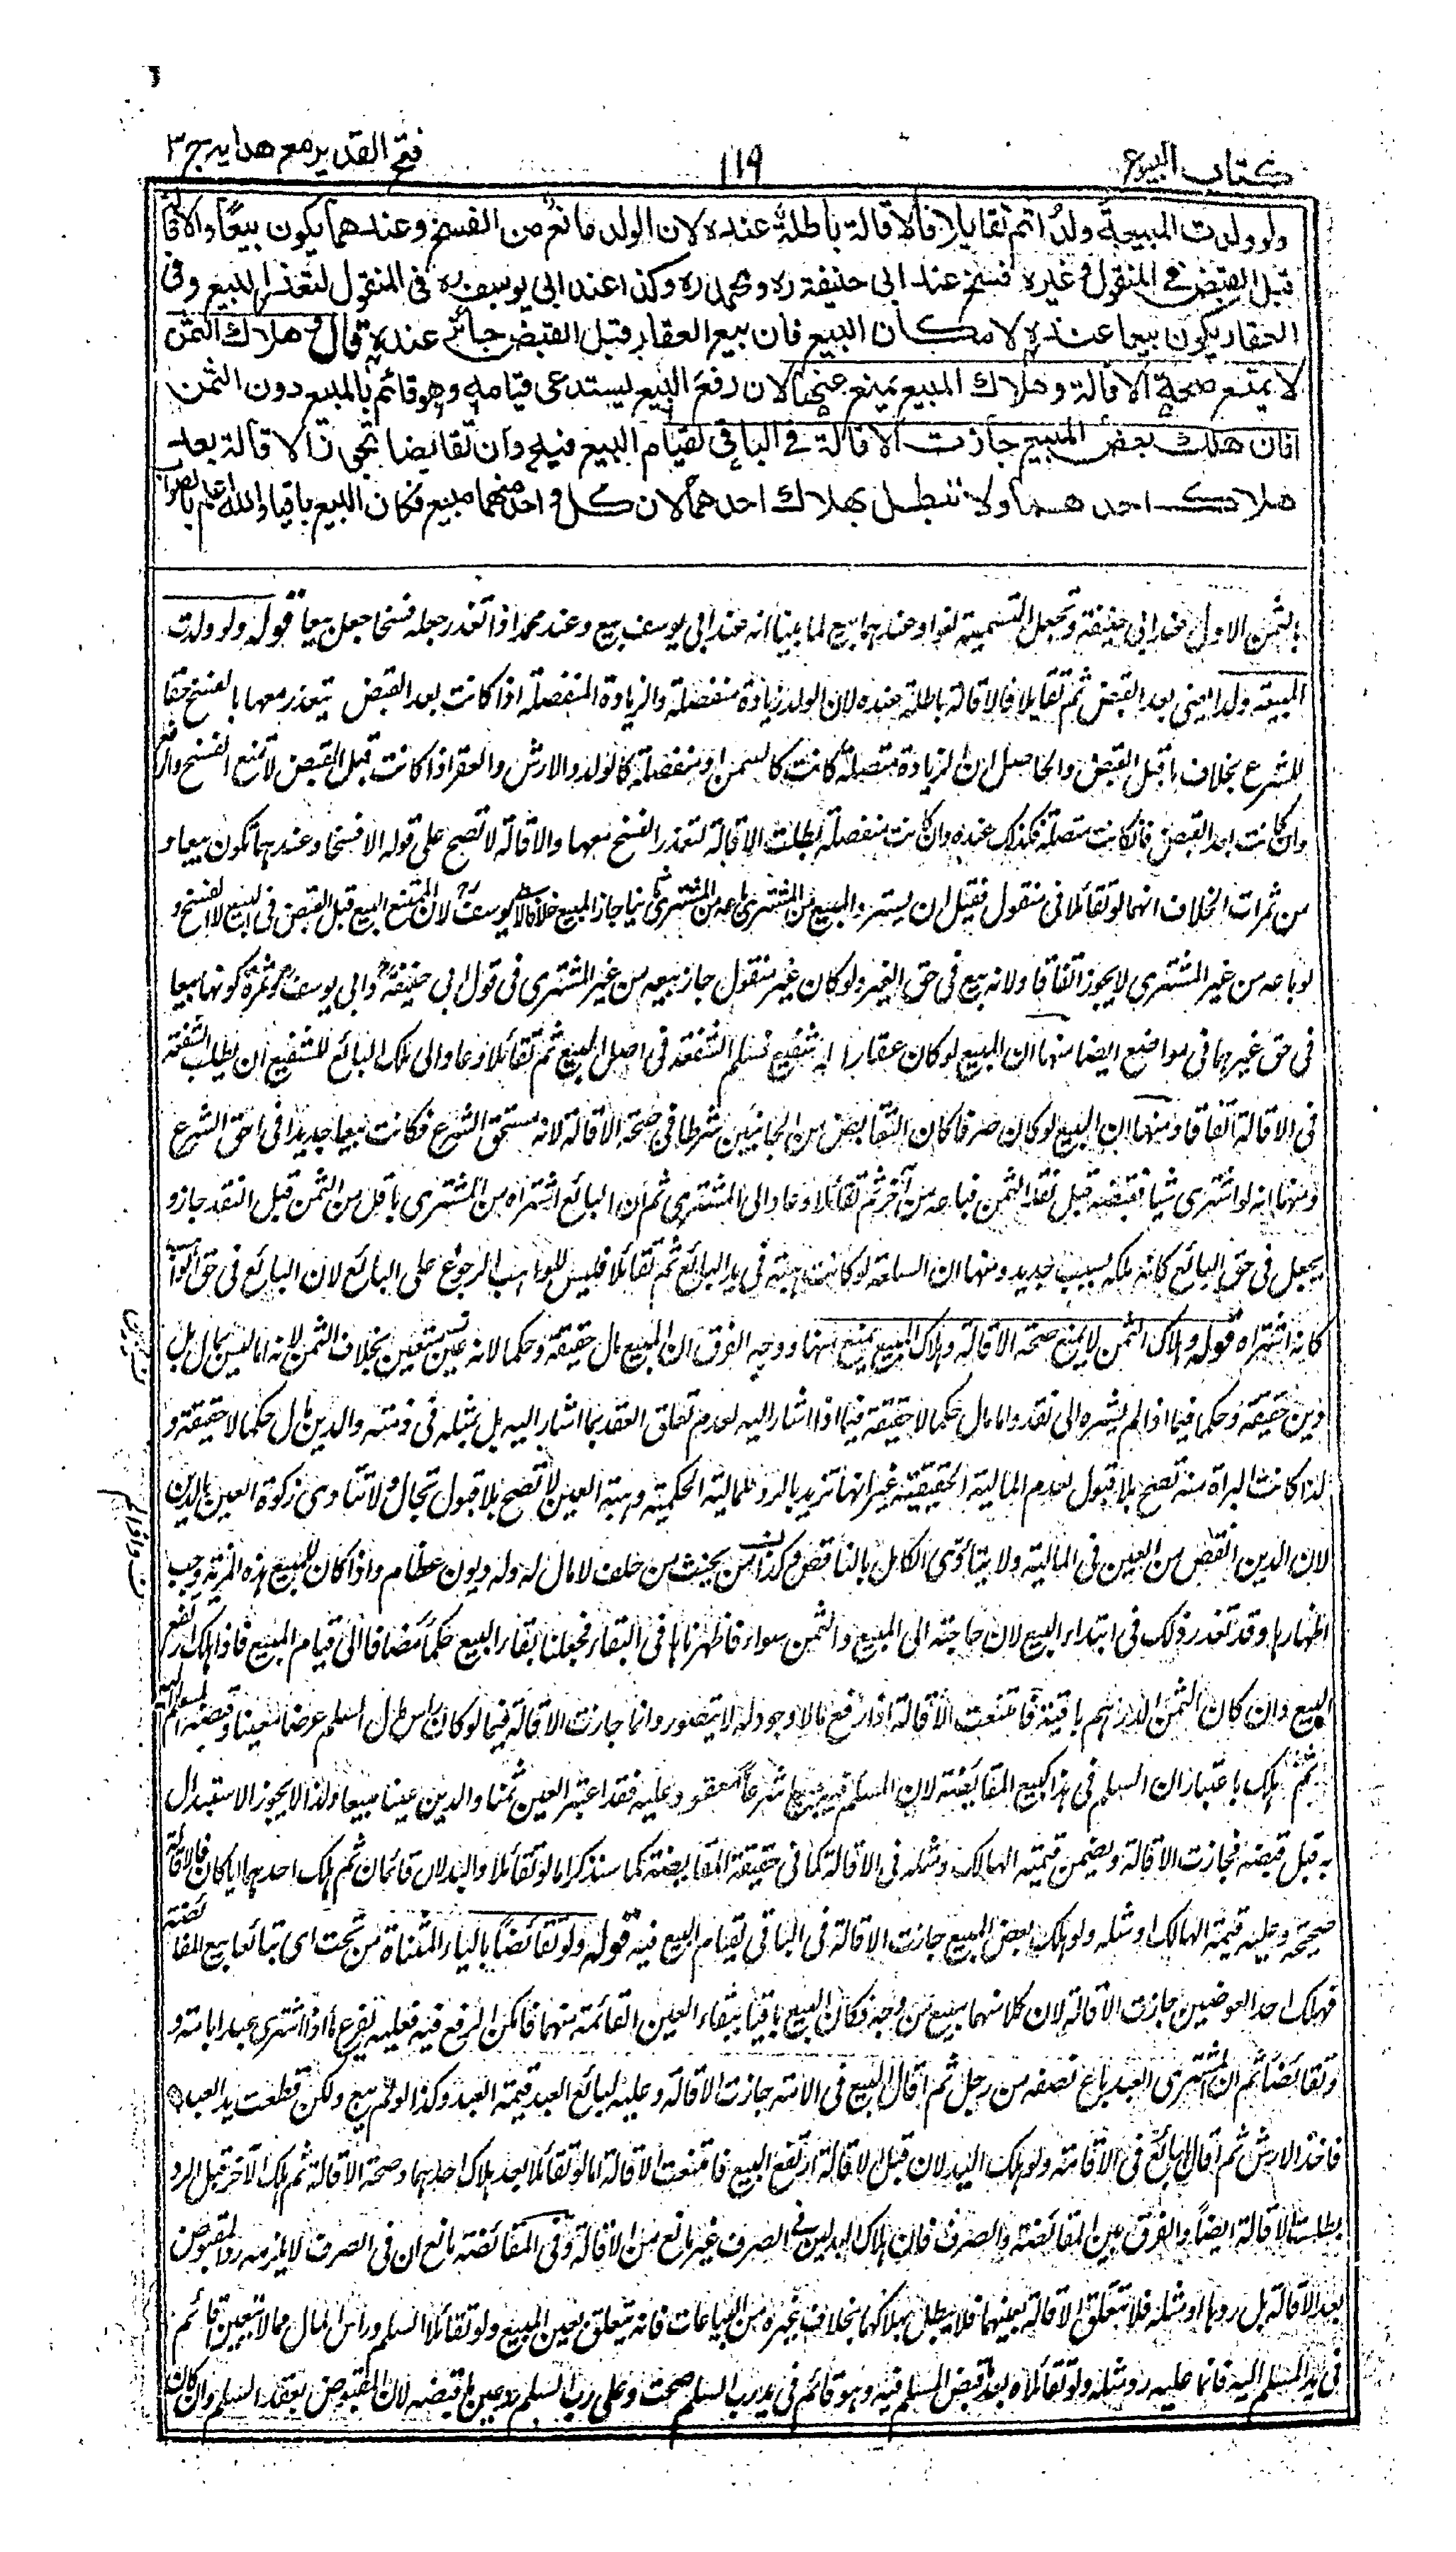 كتاب البيوع
١١٩
فتح القدير مع هدايه ج ٣
ولو ولدت المبيعة ولدا ثم تقايلا فالاقالة باطلة عنده لان الولد مانع من الفسخ وعندهما يكون بيعا والاقالة
قبل القبض في المنقول وغيره فسخ عند ابى حنيفة ره ومحمد ره وكذا عند ابى يوسف ره فى المنقول لتعذر البيع وفى
العقار يكون بيعا عنده لامكان البيع فان بيع العقار قبل القبض جائز عنده قال وهلاك الثمن
لا يمنع صحة الاقالة وهلاك المبيع يمنع عنها لان رفع البيع يستدعى قيامه وهو قائم بالمبيع دون الثمن
فان هلك بعض المبيع جازت الاقالة فى الباقى لقيام البيع فيه وان تقايضا تجوز الاقالة بعد
هلاك احدهما ولا تبطل بهلاك احدهما لان كل واحد منهما مبيع فكان البيع باقيا والله اعلم بالصواب
بالثمن الاول عند ابى حنيفة وتجعل التسمية لغوا وعندهما بيع لما بينا انه عند ابى يوسف بيع وعند محمد اذا تعذر جعله فسخا جعل بيعا قوله ولو ولدت
المبيعة ولدا يعنى بعد القبض ثم تقايلا فالاقالة باطلة عنده لان الولد زيادة منفصلة والزيادة المنفصلة اذا كانت بعد القبض يتعذر معها بالفسخ حقا
للشرع بخلاف ما قبل القبض والحاصل ان الزيادة متصلة كانت كالسمن او منفصلة كالولد والارش والعقر اذا كانت قبل القبض لا تمنع الفسخ والرفع
وان كانت بعد القبض فان كانت متصلة فكذلك عنده وان كانت منفصلة بطلت الاقالة لتعذر الفسخ معها والاقالة لا تصح على قوله الا فسخا وعندهما تكون بيعا و
من ثمرات الخلاف انهما لو تقائلا فى منقول فقبل ان يسترد المبيع من المشترى باعه من المشترى ثانيا جاز المبيع خلافا لابى يوسف لان الممتنع البيع قبل القبض فى البيع لا الفسخ و
لو باعه من غير المشترى لا يجوز اتفاقا ولانه بيع فى حق الغير ولو كان غير منقول جاز بيعه من غير المشترى فى قول ابى حنيفة وابى يوسف وثمرة كونها بيعا
فى حق غيرهما فى مواضع ايضا منها ان المبيع لو كان عقارا له شفيع فسلم الشفعة فى اصل البيع ثم تقائلا وعاد الى ملك البائع للشفيع ان يطلب الشفعة
فى الاقالة اتفاقا ومنها ان البيع لو كان صرفا كان التقابض من الجانبين شرطا فى صحة الاقالة لانه مستحق الشرع فكانت بيعا جديدا فى حق الشرع
ومنها انه لو اشترى شيا فقبضه قبل نقد الثمن فباعه من آخر ثم تقائلا وعاد الى المشترى ثم ان البائع اشتراه من المشترى باقل من الثمن قبل النقد جاز و
يجعل فى حق البائع كانه ملكه بسبب جديد ومنها ان السلعة لو كانت هبة فى يد البائع ثم تقائلا فليس للواهب الرجوع على البائع لان البائع فى حق الواهب
كانه اشتراه قوله وهلاك الثمن لا يمنع صحة الاقالة وهلاك المبيع يمنع عنها ووجه الفرق ان المبيع مال حقيقة وحكما لانه عين متعين بخلاف الثمن لانه اما ليس بمال بل
دين حقيقة وحكما فيما اذا لم يشره الى نقد واما مال حكما لا حقيقة فيما اذا اشار اليه لعدم تعلق العقد بما اشار اليه بل بمثله فى ذمته والدين مال حكما لا حقيقة و
لذا كانت البراة منه تصح بلا قبول لعدم المالية الحقيقية غير انها ترتد بالرد للمالية الحكمية وهبة العين لا تصح بلا قبول بحال ولا تتادى زكوة العين بالدين
لان الدين انقص من العين فى المالية ولا يتادى الكامل بالناقص وكذا لم يحنث من حلف لا مال له وله ديون عظام واذا كان للمبيع هذه المزية وجب
اظهارها وقد تعذر ذلك فى ابتداء البيع لان حاجته الى المبيع والثمن سواء فاظهرناها فى البقاء فجعلنا بقاء البيع حكما مضافا الى قيام المبيع فاذا هلك ارتفع
البيع وان كان الثمن الدراهم باقية فامتنعت الاقالة اذ رفع مالا وجود له لا يتصور وانما جازت الاقالة فيما لو كان راس مال السلم عرضا معينا وقبضه المسلم اليه
ثم هلك باعتبار ان السلم فى هذا كبيع المقايضة لان المسلم فيه شرعا معقود عليه فقد اعتبر العين ثمنا والدين عينا مبيعا ولذا لا يجوز الاستبدال
به قبل قبضه فجازت الاقالة ويضمن قيمته الهالك ومثله فى الاقالة كما فى حقيقة المقايضة كما سنذكر اما لو تقائلا والبدلان قائمان ثم هلك احدهما ايا كان فالاقالة
صحيحة وعليه قيمة الهالك او مثله ولو هلك بعض المبيع جازت الاقالة فى الباقى لقيام البيع فيه قوله ولو تقائضا بالياء المثناة من تحت اى تبائعا بيع المقائضة
فهلك احد العوضين جازت الاقالة لان كلا منهما مبيع من وجه فكان البيع باقيا ببقاء العين القائمة منهما فامكن الرفع فيه فعليه تفرع ما اذا اشترى عبدا بامة و
وتقائضا ثم ان المشترى العبد باع نصفه من رجل ثم اقال البيع فى الامة جازت الاقالة وعليه لبائع العبد قيمة العبد وكذا لو لم يبع ولكن قطعت يد العبد
فاخذ الارش ثم اقال البائع فى الاقامة ولو هلك البدلان قبل الاقالة ارتفع البيع فامتنعت الاقالة اما لو تقائلا بعد هلاك احدهما وصحة الاقالة ثم هلك الآخر قبل الرد
بطلت الاقالة ايضا والفرق بين المقائضة والصرف فان هلاك البدلين فى الصرف غير مانع من الاقالة وفى المقائضة مانع ان فى الصرف لا يلزمه رد المقبوض
بعد الاقالة بل رده او مثله فلا تتعلق الاقالة بعينهما فلا يبطل بهلاكهما بخلاف غيره من البياعات فانه يتعلق بعين المبيع ولو تقائلا السلم وراس المال مما لا يتعين قائم
فى يد المسلم اليه فانما عليه رد مثله ولو تقائلاه بعد قبض المسلم فيه وهو قائم فى يد رب السلم صحت وعلى رب السلم رد عين ما قبضه لان المقبوض بعقد السلم وان كان